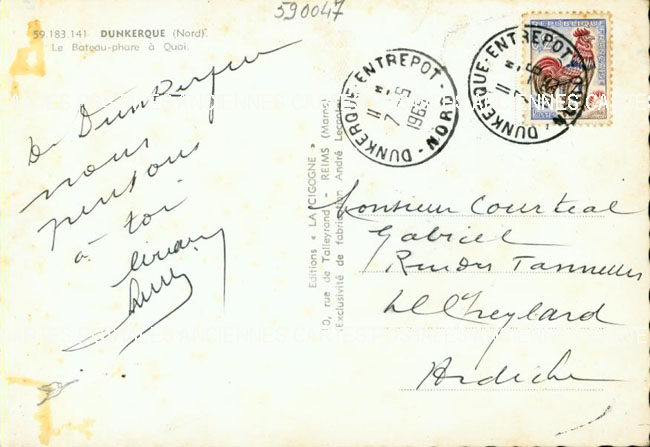 590047
59.183.141 DUNKERQUE (Nord).
Le Bateau-phare à Quai.
De Dunkerque
nous
pensons
à toi
Editions « LA CIGOGNE »
rue de Talleyrand - REIMS (Marne)
Exclusivité de fabrication André Leconte
DUNKERQUE-ENTREPOT - NORD
11 H
7-5
1965
DUNKERQUE-ENTREPOT
11 H
REPUBLIQUE
Monsieur Courteal
Gabriel
Tanneries
Le Cheylard
Ardèche
CARTES POSTALES ANCIENNES CARTES POSTALES ANCIENNES